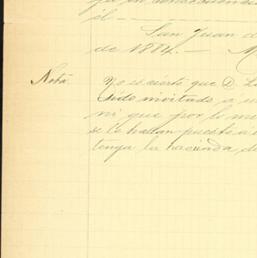 él - -
San Juan d
de 1884. - M
Nota No es cierto que D. L
sido invitado á u
ni que por lo me
se le hallan puesto á
tenga la hacienda, de